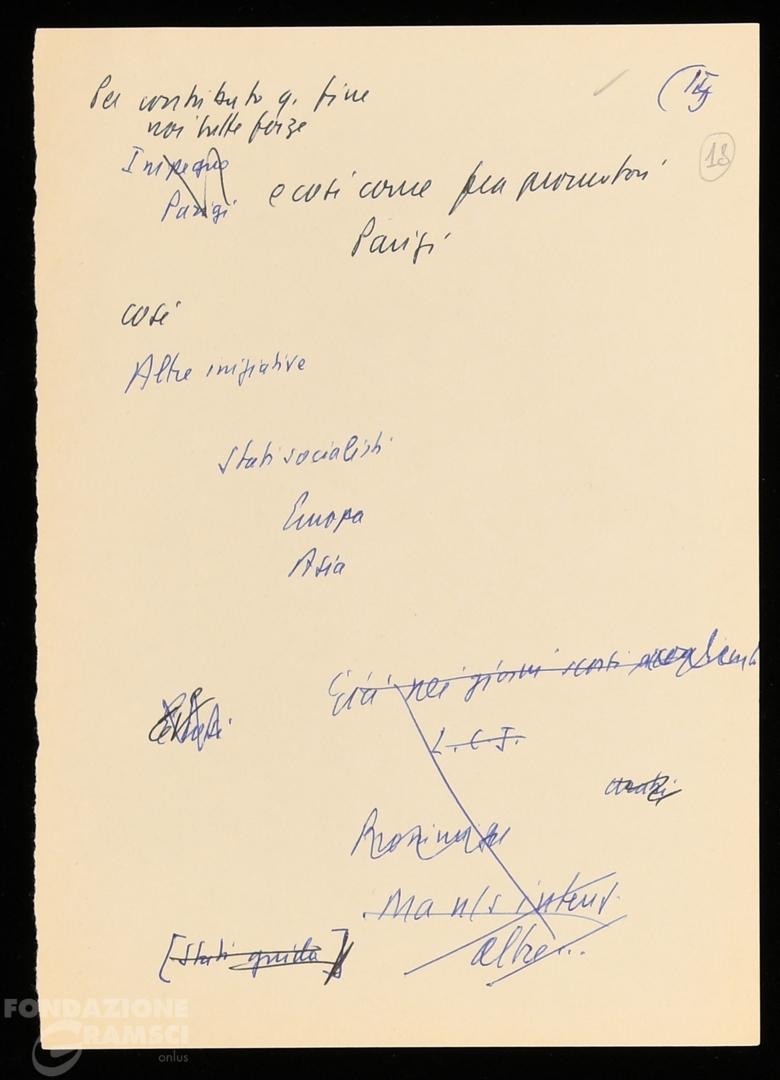 Per contributo q. fine
noi tutte forze
Impegno
Parigi
e così come fra promotori
Parigi
così
Altre iniziative
Stati socialisti
Europa
Asia
Già nei giorni scorsi
L.C.J.
Ma n/s intens.
altre...
[Stati guida]
18
FONDAZIONE
GRAMSCI
onlus